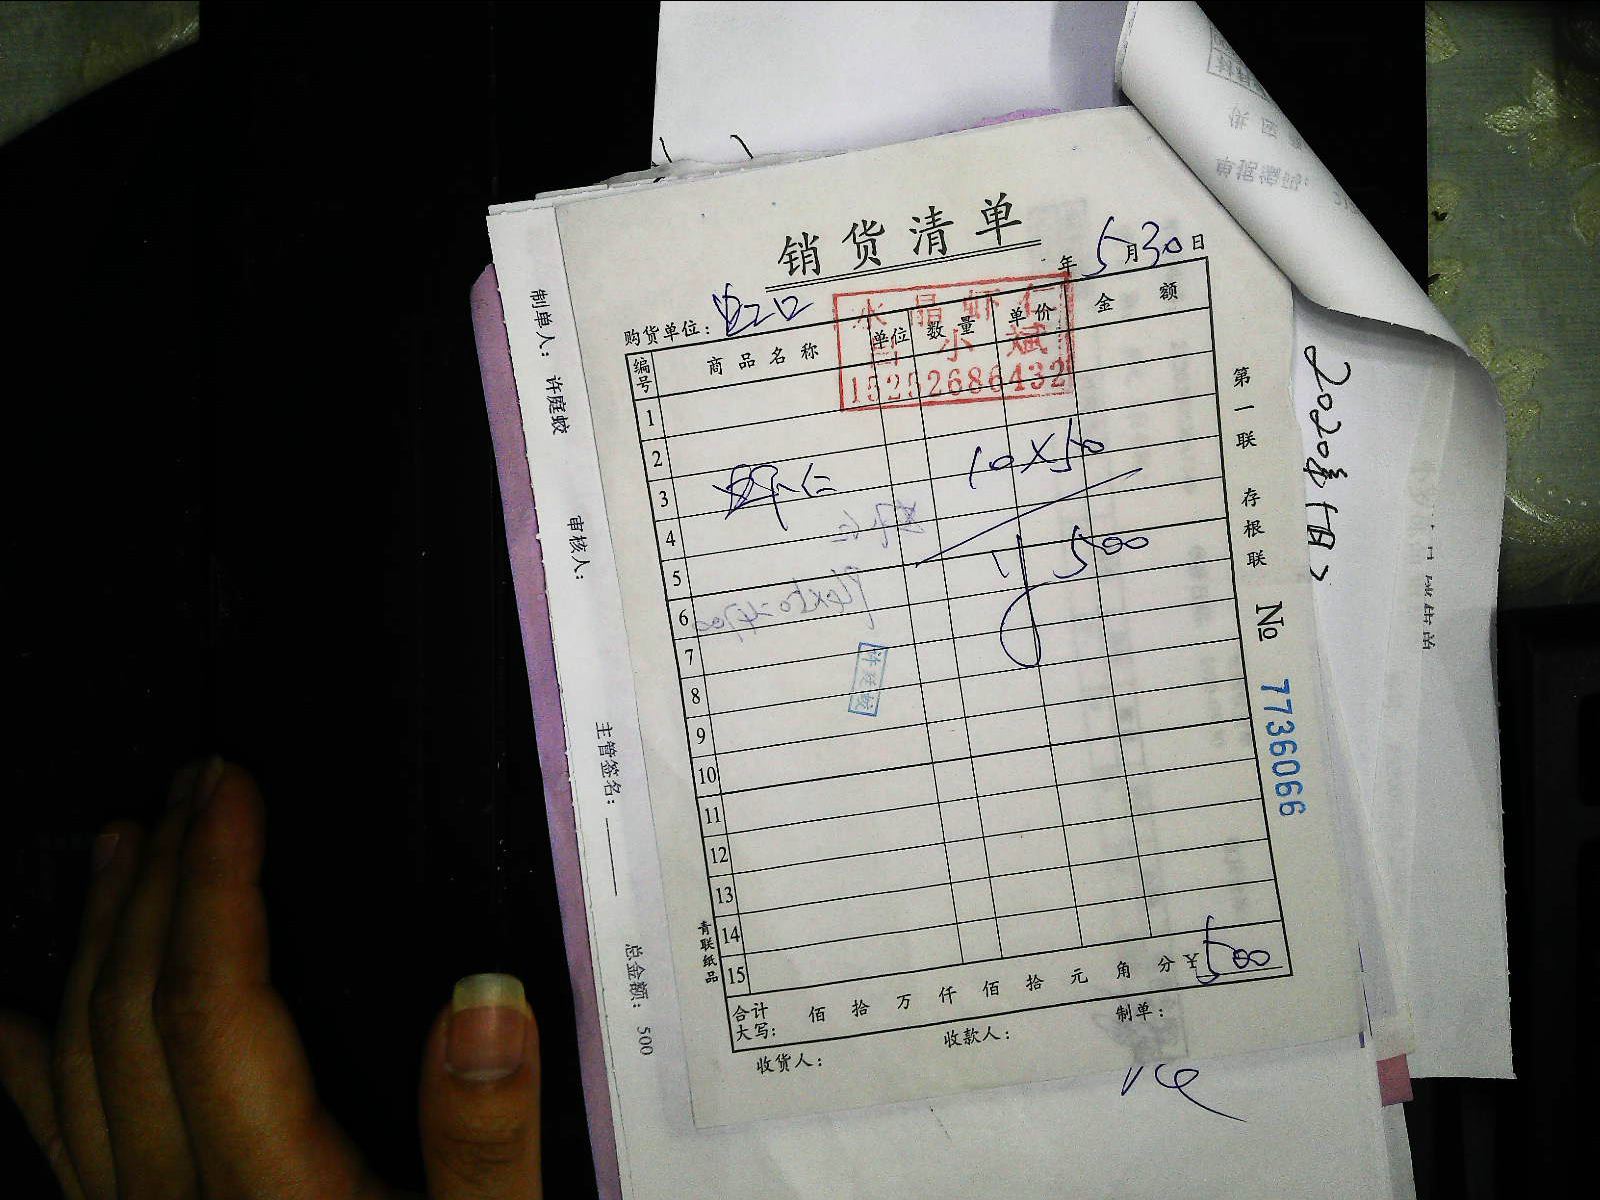 销货清单
年5月30日
购货单位：
水晶虾仁
小斌
15252686432
编号 商品名称 单位 数量 单价 金额
1
2
3 虾仁 10×50
4
5 500
6
7
8
9
10
11
12
13
14
15
合计
大写： 佰 拾 万 仟 佰 拾 元 角 分 ¥500
收货人： 收款人： 制单：
青联纸品
第一联 存根联 № 7736066
制单人： 许庭蛟 审核人： 主管签名： 总金额： 500
许庭蛟